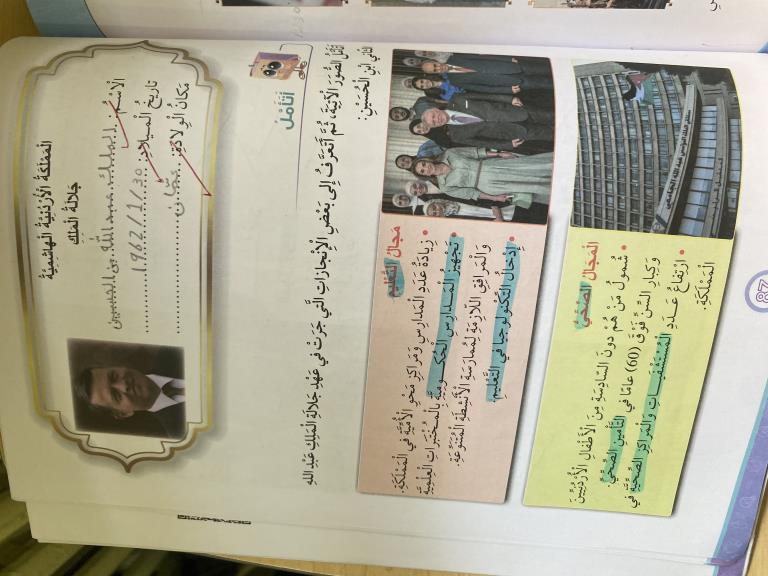 الْمَمْلَكَةُ الْأُرْدُنِيَّةُ الْهَاشِمِيَّةُ
جَلَالَةُ الْمَلِكِ
الِاسْمُ: الملك عبدالله بن الحسين
تَارِيخُ الْمِيلَادِ: 1962/1/30
مَكَانُ الْوِلَادَةِ: عمّان
أَتَأَمَّلُ
أَتَأَمَّلُ الصُّوَرَ الْآتِيَةَ، ثُمَّ أَتَعَرَّفُ إِلَى بَعْضِ الْإِنْجَازَاتِ الَّتِي جَرَتْ فِي عَهْدِ جَلَالَةِ الْمَلِكِ عَبْدِ اللهِ
الثَّانِي ابْنِ الْحُسَيْنِ:
مَجَالُ التَّعْلِيمِ
• زِيَادَةُ عَدَدِ الْمَدَارِسِ وَمَرَاكِزِ مَحْوِ الْأُمِّيَّةِ فِي الْمَمْلَكَةِ.
• تَجْهِيزُ الْمَدَارِسِ الْحُكُومِيَّةِ بِالْمُخْتَبَرَاتِ الْعِلْمِيَّةِ
وَالْمَرَافِقِ اللَّازِمَةِ لِمُمَارَسَةِ الْأَنْشِطَةِ الْمُتَنَوِّعَةِ.
• إِدْخَالُ التِّكْنُولُوجْيَا فِي التَّعْلِيمِ.
الْمَجَالُ الصِّحِّيُّ
• شُمُولُ مَنْ هُمْ دُونَ السَّادِسَةِ مِنَ الْأَطْفَالِ الْأُرْدُنِيِّينَ
وَكِبَارِ السِّنِّ فَوْقَ (60) عَامًا فِي التَّأْمِينِ الصِّحِّيِّ.
• ارْتِفَاعُ عَدَدِ الْمُسْتَشْفَيَاتِ وَالْمَرَاكِزِ الصِّحِّيَّةِ فِي
الْمَمْلَكَةِ.
87